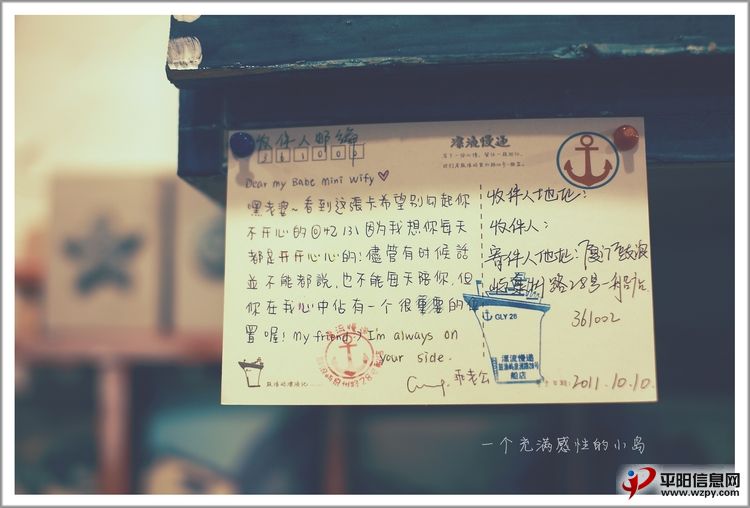 收件人邮编
361000
漂流慢递
Dear my Babe Mini Wify
嘿老婆~看到這張卡希望別勾起你
不开心的回忆131因為我想你每天
都是开开心心的!儘管有时候話
並不能都說,也不能每天陪你,但
你在我心中佔有一个很重要的位
置喔! My friend:) I'm always on
your side.
乖老公
收件人地址:
收件人:
寄件人地址:厦门鼓浪
屿泉州路28号-船店
361002
2011.10.10.
GLY 28
漂流慢递
鼓浪屿泉州路28号
船店
一个充满感性的小岛
平阳信息网
www.wzpy.com